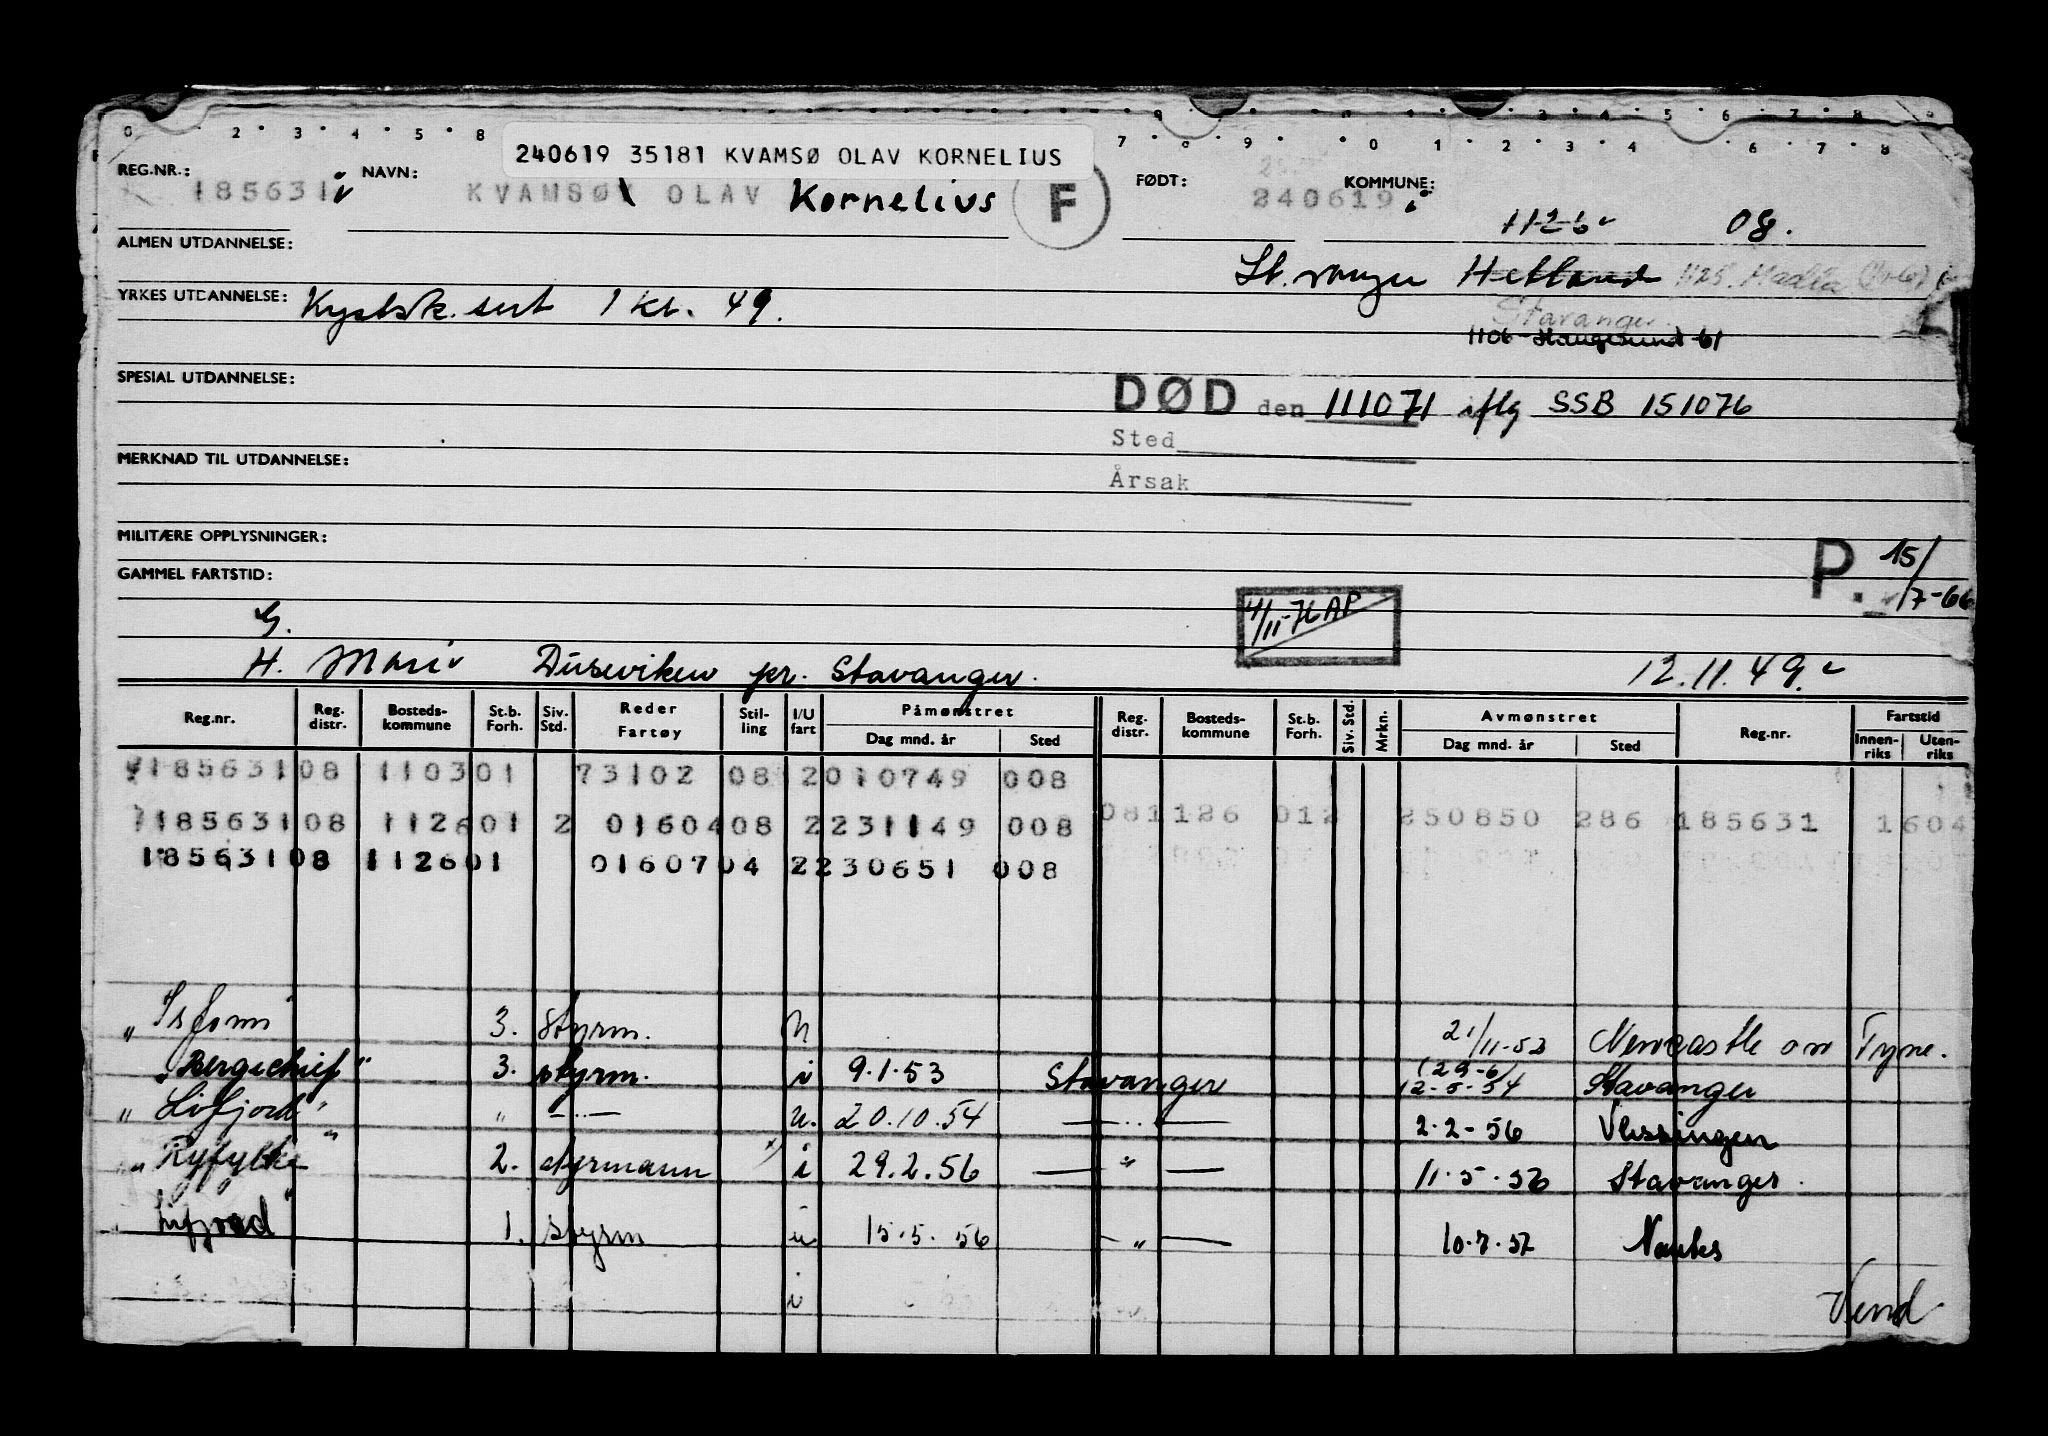 240619 35181 KVAMSØ OLAV KORNELIUS
REG.NR.: 185631 NAVN: KVAMSØ OLAV Kornelius F FØDT: 240619 KOMMUNE: 1126 08.
ALMEN UTDANNELSE:
Hetland 1125 Madla
YRKES UTDANNELSE: Kystsk. sert 1 kl. 49.
Stavanger
1106 Haugesund 61
SPESIAL UTDANNELSE:
DØD den 111071 iflg SSB 151076
Sted
MERKNAD TIL UTDANNELSE:
Årsak
MILITÆRE OPPLYSNINGER:
P. 15/7-66
GAMMEL FARTSTID:
4/11-76 AP
G.
H. Mari Duseviken pr. Stavanger. 12.11.49.
Reg.nr. Reg. distr. Bosteds-kommune St.b. Forh. Siv. Std. Reder Fartøy Stil-ling I/U fart Påmønstret Dag mnd. år Sted Reg. distr. Bosteds-kommune St.b. Forh. Siv. Std. Mrkn. Avmønstret Dag mnd. år Sted Reg.nr. Fartstid Innen-riks Uten-riks
18563108 110301 73102 08 2010749 008
18563108 112601 2 0160408 2231149 008 081126 012 250850 286 185631 1604
18563108 112601 0160704 2230651 008
"Isfonn 3. Styrm. U 21/11-53 Newcastle on Tyne.
"Bergechief" 3. styrm. i 9.1.53 Stavanger (29-6) 12-5-54 Stavanger
"Lifjord" " —"— u. 20.10.54 —"— 2-2-56 Vlissingen
"Ryfylke" 2. styrmann x) i 29.2.56 —"— 11-5-56 Stavanger.
"Lifjord" 1. styrm u 15.5.56 —"— 10-7-57 Nantes
i
Vend